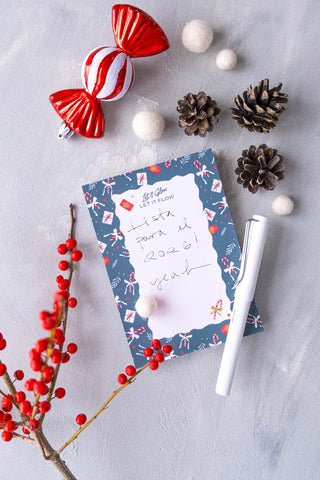 Let it Glow
LET IT FLOW
Lista
para el
2026!
yeah